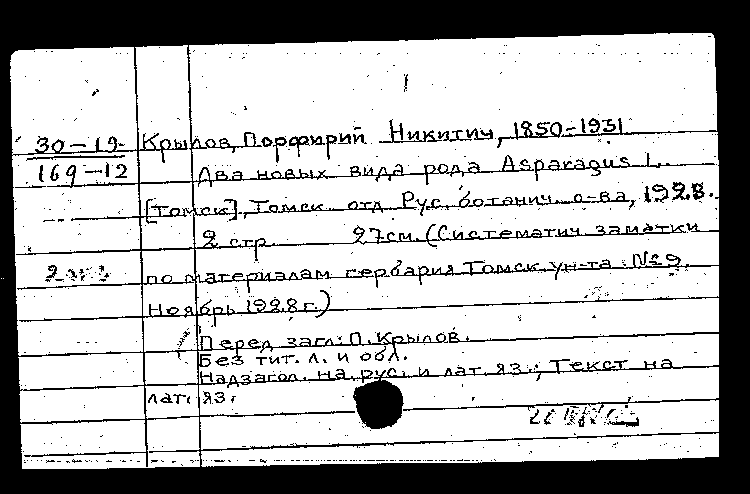 30-19 Крылов, Порфирий Никитич, 1850-1931
169-12 Два новых вида рода Asparagus L.
[Томск], Томск. отд. Рус. ботанич. о-ва, 1928.
2 стр. 27см. (Систематич. заметки
по материалам гербария Томск. ун-та: №9.
Ноябрь 1928г.)
Перед загл: П. Крылов.
Без тит. л. и обл.
Надзагол. на рус. и лат. яз.; Текст на
лат. яз.